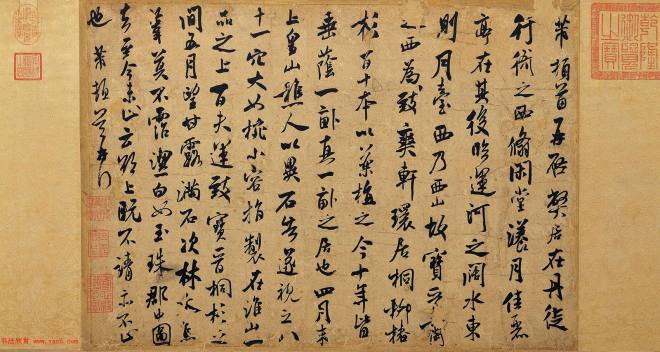 芾頓首再啓弊居在丹徒
行衙之西翛閑堂漾月佳麗
亭在其後臨運河之闊水東
則月臺西乃西山故寶晉齋
之西為致爽軒環居桐柳椿
杉百十本以藥植之今十年皆
垂蔭一畝真一畝之居也四月末
上皇山樵人以異石告遂視之八
十一穴大如椀小容指製在淮山一
品之上百夫運致寶晉桐杉之
間五月望甘露滿石次林木焉
莫不霑潔白如玉珠郡中圖
去至今未止云欲上既不請亦不止
也 芾頓首
书法欣赏 www.yac8.com